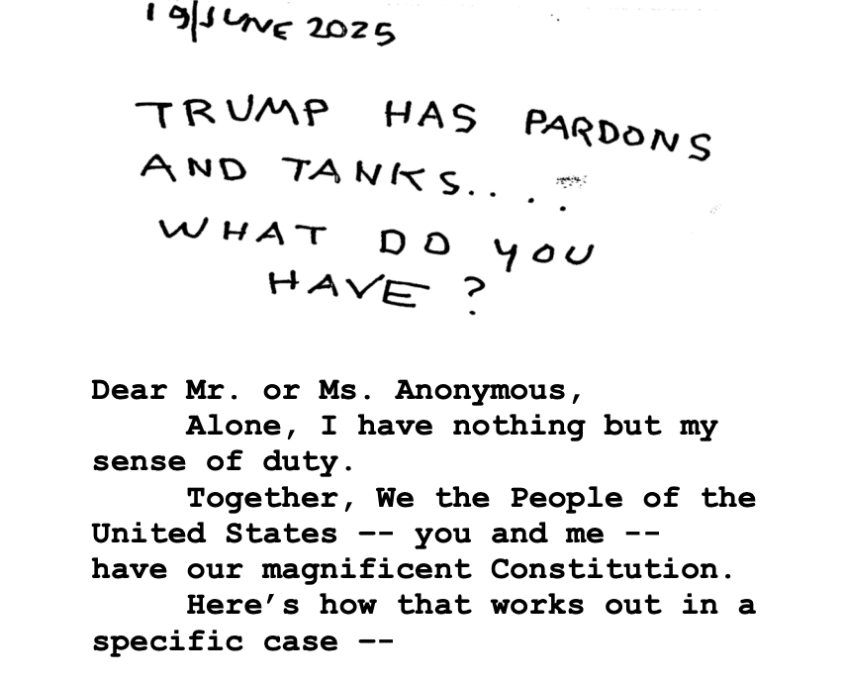 19/JUNE 2025
TRUMP HAS PARDONS
AND TANKS....
WHAT DO YOU
HAVE?
Dear Mr. or Ms. Anonymous,
Alone, I have nothing but my
sense of duty.
Together, We the People of the
United States -- you and me --
have our magnificent Constitution.
Here’s how that works out in a
specific case --